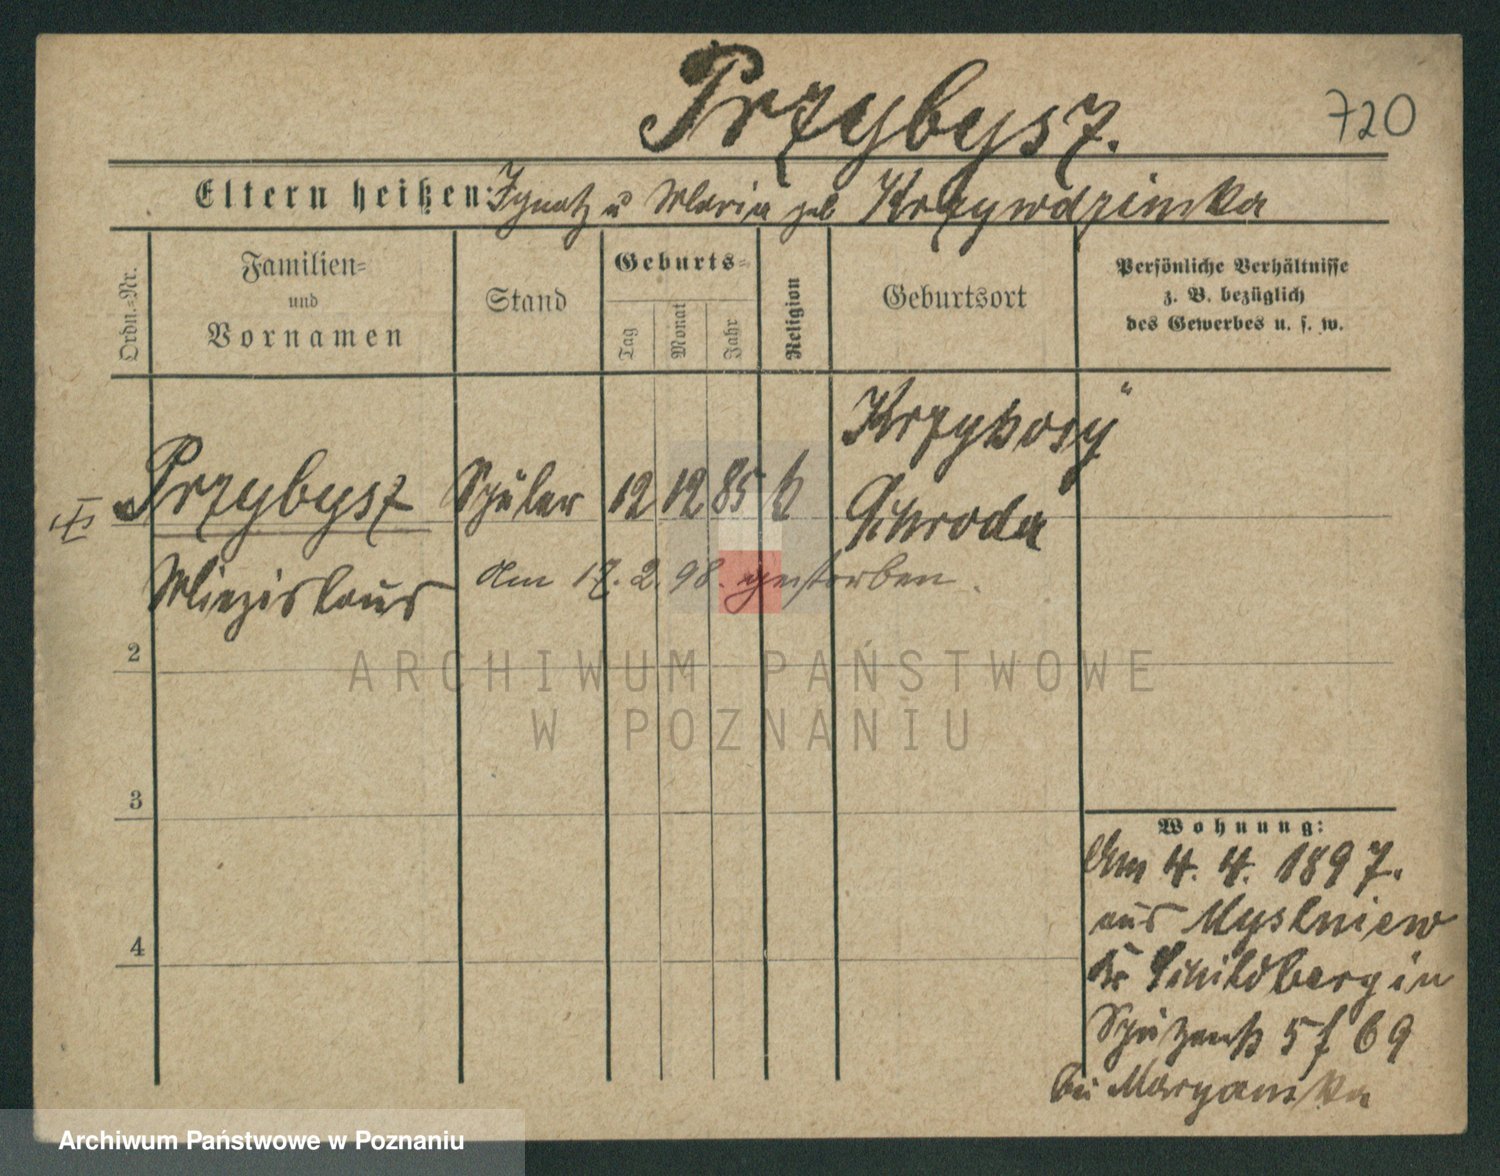 Przybysz.
720
Eltern heißen: Ignatz u Maria geb Krzywdzinska
Ordn.-Nr.
Familien-
und
Vornamen
Stand
Geburts-
Tag
Monat
Jahr
Religion
Geburtsort
Persönliche Verhältnisse
z. B. bezüglich
des Gewerbes u. s. w.
Przybysz Schüler 12 12 85 k Krzykosy
Schroda
Miezislaus
Am 17. 2. 98. gestorben.
2
3
4
Wohnung:
Am 4. 4. 1897.
aus Myslniew
Kr Schildberg in
Schützenstr 5 f 69
bei Maryanska
ARCHIWUM PAŃSTWOWE
W POZNANIU
Archiwum Państwowe w Poznaniu